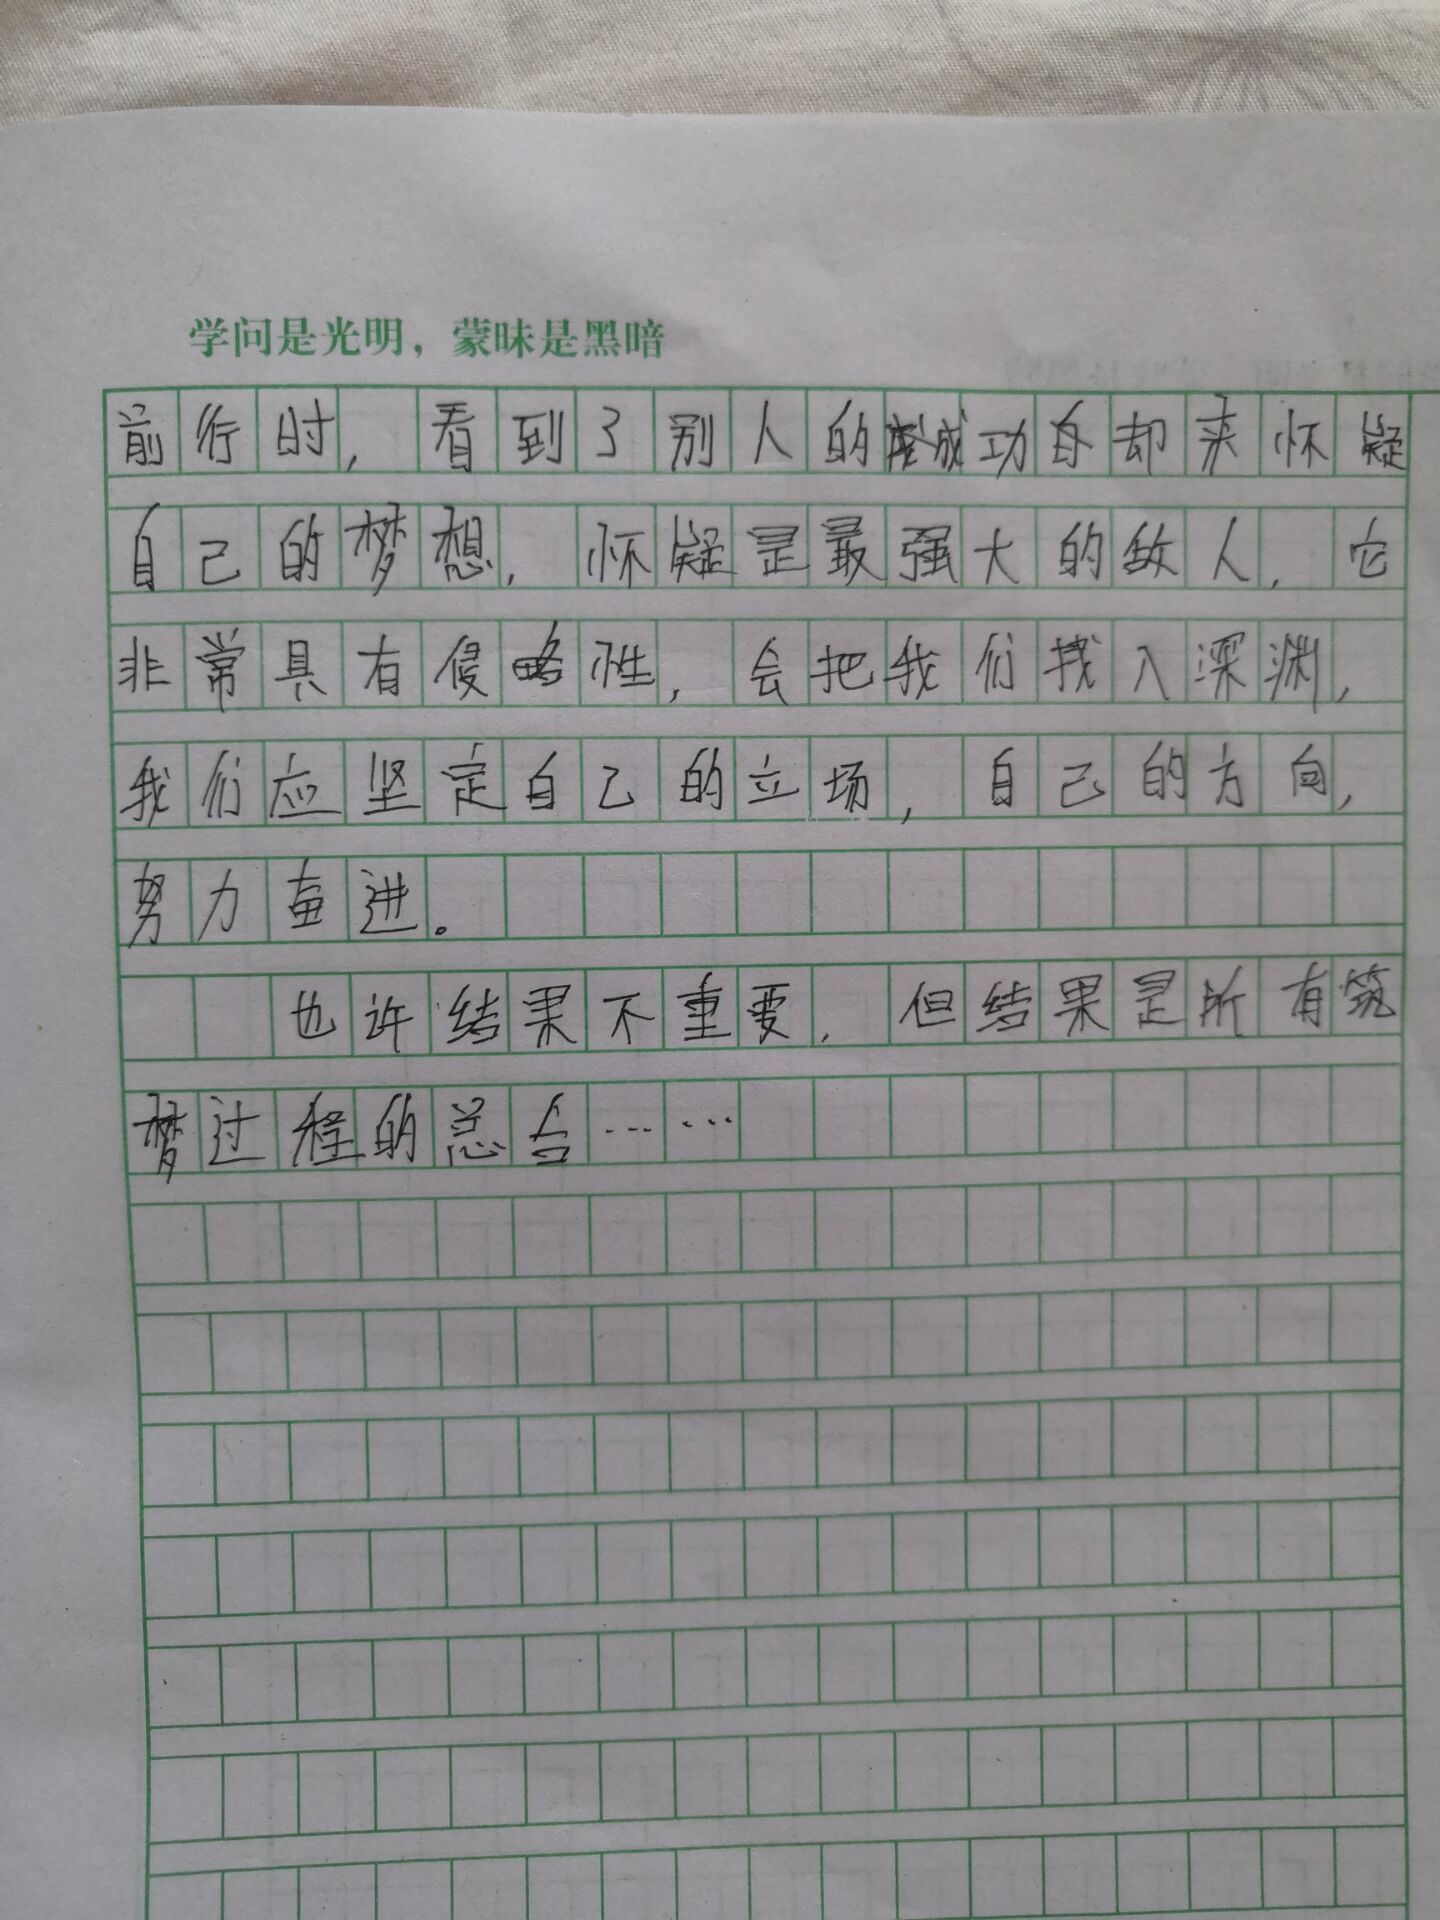 学问是光明，蒙昧是黑暗
前行时，看到了别人的成功自却来怀疑
自己的梦想，怀疑是最强大的敌人，它
非常具有侵略性，会把我们找入深渊，
我们应坚定自己的立场，自己的方向，
努力奋进。
也许结果不重要，但结果是所有筑
梦过程的总合……